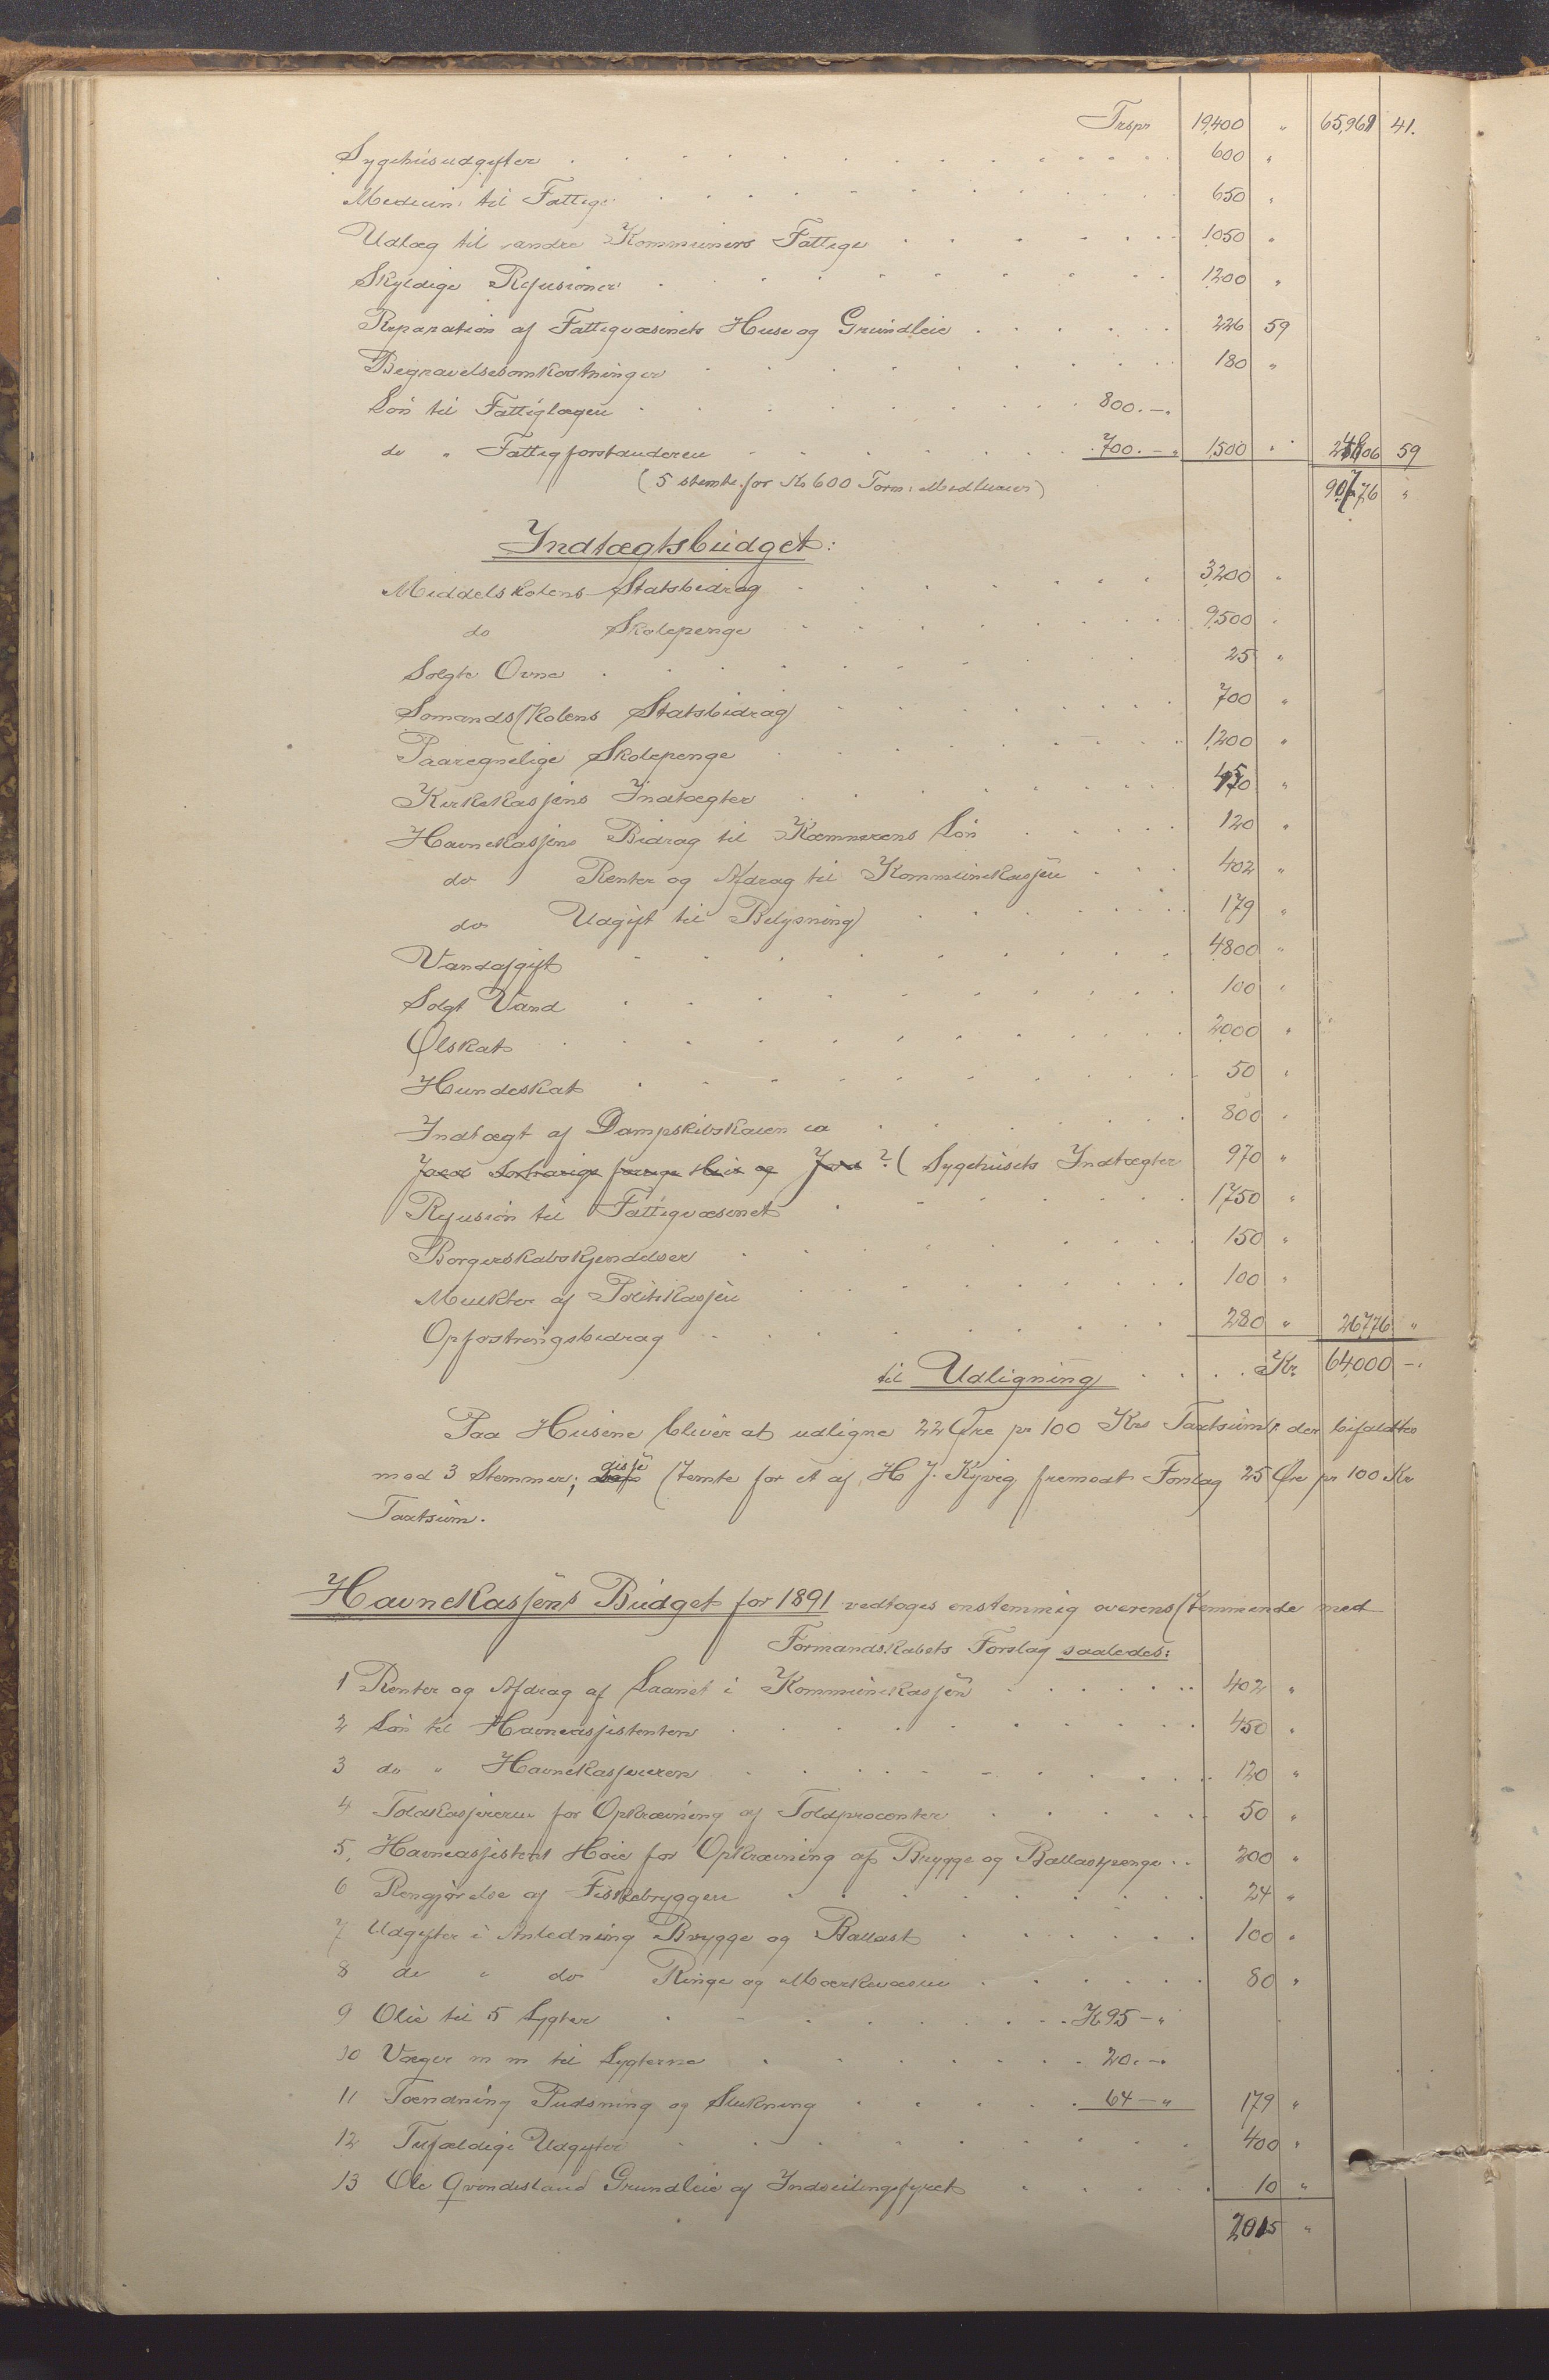 Trspr 19,400 " 65,969 41.
Sygehusudgifter 600 "
Medicin til Fattige 650 "
Udlæg til andre Kommuners Fattige 1050 "
Skyldige Refusioner 1200 "
Reparation af Fattigvæsenets Huse og Grundleie 226 59
Begravelsesomkostninger 180 "
Løn til Fattiglægen 800.-"
do " Fattigforstanderen 700.-" 1500 " 24806 59
(5 stemte for Kr 600 Form: Medlemmer)
90,776 "
Indtægtsbudget:
Middelskolens Statsbidrag 3200 "
do Skolepenge 9500 "
Solgte Ovne 25 "
Sømandsskolens Statsbidrag 700 "
Paaregnelige Skolepenge 1200 "
Kirkekassens Indtægter 450 "
Havnekassens Bidrag til Kæmnerens Løn 120 "
do Renter og Afdrag til Kommunekassen 402 "
do Udgift til Belysning 179 "
Vandafgift 4800 "
Solgt Vand 100 "
Ølskat 2000 "
Hundeskat 50 "
Indtægt af Dampskibskaien ca 800 "
? ( Sygehusets Indtægter 970 "
Refusion til Fattigvæsenet 1750 "
Borgerskabskjendelser 150 "
Mulkter af Politikassen 100 "
Opfostringsbidrag 280 " 26776 "
til Udligning Kr. 64,000 -"
Paa Husene bliver at udligne 22 Øre pr 100 Krs Taxtsum; der bifaldtes
med 3 Stemmer; stemte for et af H J. Kyvig fremsat Forslag 25 Øre pr 100 Kr
Taxtsum.
Havnekassens Budget for 1891 vedtoges enstemmig overensstemmende med
Formandskabets Forslag saaledes:
1 Renter og Afdrag af Laanet i Kommunekassen 402 "
2 Løn til Havneassistenten 450 "
3 do " Havnekassereren 120 "
4 Toldkassereren for Opkrævning af Toldprocenter 50 "
5, Havneassistent Høie for Opkrævning af Brygge og Ballastpenge 200 "
6 Rengjørelse af Fiskebryggen 24 "
7 Udgifter i Anledning Brygge og Ballast 100 "
8 do " do Ringe og Mærkevæsen 80 "
9 Olie til 5 Lygter K 95 -"
10 Væger m m til Lygterne 20.-"
11 Tænding Pudsning og Slukning 64 -" 179 "
12 Tilfældige Udgifter 400 "
13 Ole Qvindesland Grundleie af Indseilingsfyret 10 "
2015 "